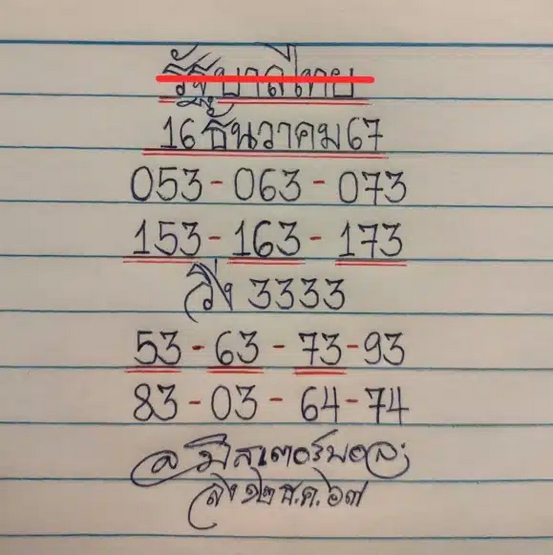 รัฐบาลไทย
16 ธันวาคม 67
053 - 063 - 073
153 - 163 - 173
วิ่ง 3333
53 - 63 - 73 - 93
83 - 03 - 64 - 74
มิสเตอร์บอล
๑๒ ธ.ค. ๖๗